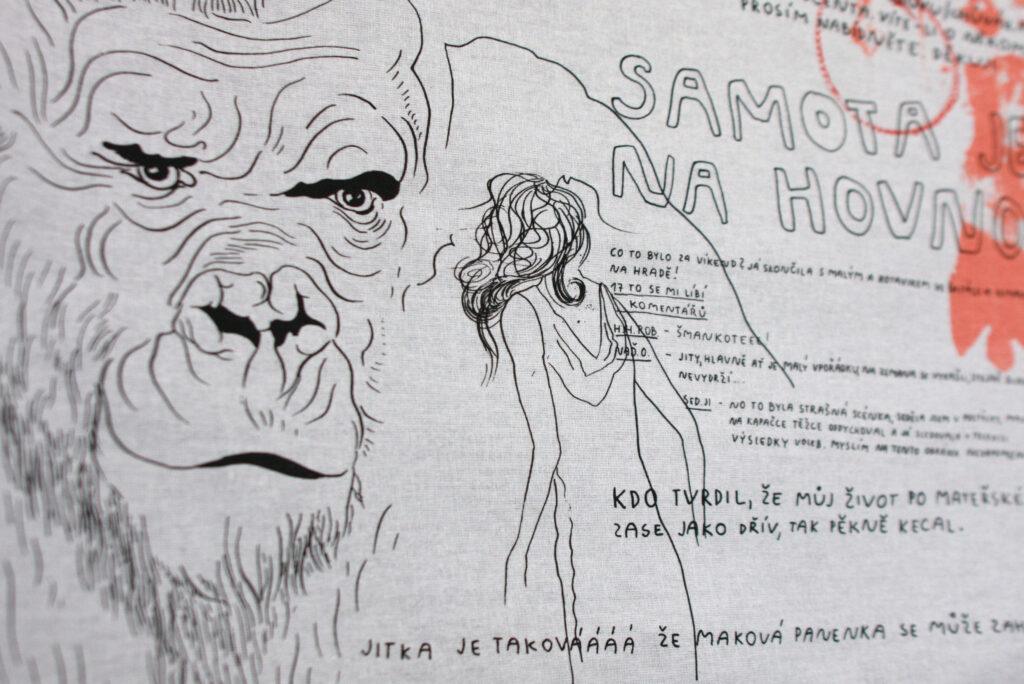 PROSÍM NABÍDNĚTE. DĚKUJI
SAMOTA JE
NA HOVNO
CO TO BYLO ZA VÍKEND? JÁ SKONČILA S MALÝM A ROTAVIREM VE
NA HRADĚ!
17 TO SE MI LÍBÍ
KOMENTÁŘŮ
H.H.ROB - ŠMANKOTEEE!
NAĎ.O. - JITY, HLAVNĚ AŤ JE MALÝ VPOŘÁDKU, NA ZEMANA SE
NEVYDRŽÍ...
ŠED.JI - NO TO BYLA STRAŠNÁ SCÉNKA, SEDĚLA JSEM V
NA KAPAČCE TĚŽCE ODDYCHOVAL A JÁ SLEDOVALA V
VÝSLEDKY VOLEB. MYSLÍM NA TENTO OBRÁZEK
KDO TVRDIL, ŽE MŮJ ŽIVOT PO MATEŘSKÉ
ZASE JAKO DŘÍV, TAK PĚKNĚ KECAL.
JITKA JE TAKOVÁÁÁÁÁ ŽE MAKOVÁ PANENKA SE MŮŽE